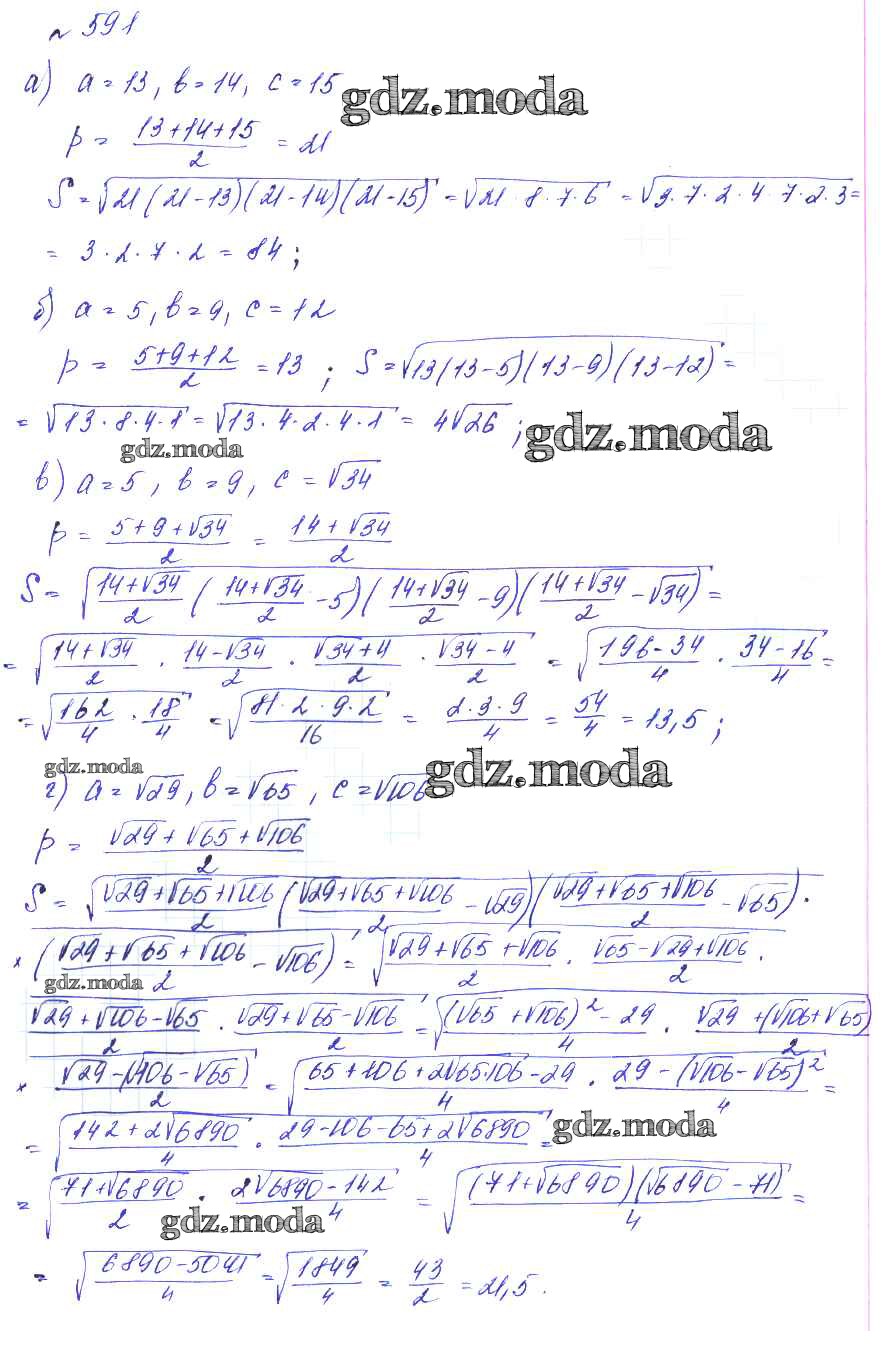 № 591
а) a = 13, b = 14, c = 15
gdz.moda
p = (13+14+15)/2 = 21
S = √(21(21-13)(21-14)(21-15)) = √(21 · 8 · 7 · 6) = √(3 · 7 · 2 · 4 · 7 · 2 · 3) =
= 3 · 2 · 7 · 2 = 84;
б) a = 5, b = 9, c = 12
p = (5+9+12)/2 = 13 ; S = √(13(13-5)(13-9)(13-12)) =
= √(13 · 8 · 4 · 1) = √(13 · 4 · 2 · 4 · 1) = 4√26 ;
gdz.moda
gdz.moda
в) a = 5, b = 9, c = √34
p = (5+9+√34)/2 = (14+√34)/2
S = √((14+√34)/2 ((14+√34)/2 - 5)((14+√34)/2 - 9)((14+√34)/2 - √34)) =
= √((14+√34)/2 · (14-√34)/2 · (√34+4)/2 · (√34-4)/2) = √((196-34)/4 · (34-16)/4) =
= √(162/4 · 18/4) = √((81 · 2 · 9 · 2)/16) = (2 · 3 · 9)/4 = 54/4 = 13,5 ;
gdz.moda
gdz.moda
г) a = √29, b = √65, c = √106
p = (√29+√65+√106)/2
S = √((√29+√65+√106)/2 ((√29+√65+√106)/2 - √29)((√29+√65+√106)/2 - √65) ·
× ((√29+√65+√106)/2 - √106) = √((√29+√65+√106)/2 · (√65-√29+√106)/2 ·
gdz.moda
(√29+√106-√65)/2 · (√29+√65-√106)/2 = √(((√65+√106)²-29)/4 · (√29+(√106+√65))/2
× (√29-(√106-√65))/2 = √((65+106+2√65·106-29)/4 · (29-(√106-√65)²)/4 =
= √((142+2√6890)/4 · (29-106-65+2√6890)/4) =
gdz.moda
= √((71+√6890)/2 · (2√6890-142)/4) = √(((71+√6890)(√6890-71))/4) =
gdz.moda
= √((6890-5041)/4) = √(1849/4) = 43/2 = 21,5.